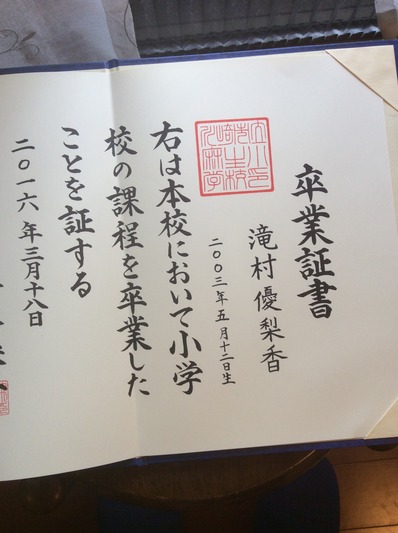 卒業証書
滝村優梨香
二〇〇三年五月十二日生
右は本校において小学
校の課程を卒業した
ことを証する
二〇一六年三月十八日